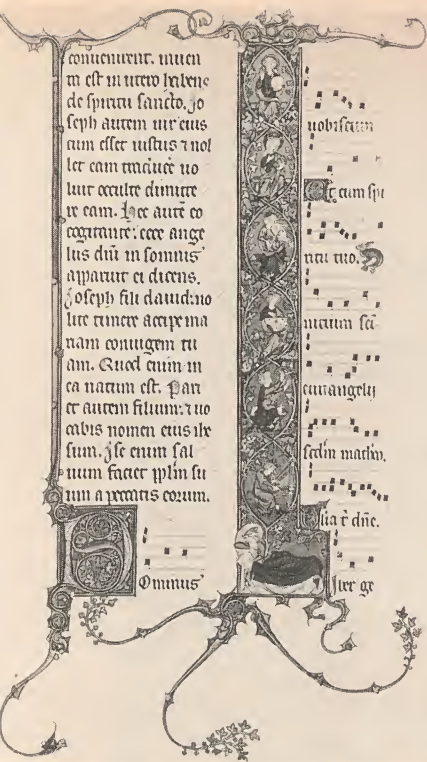 conuenirent. inuen
ta est in utero habens
de spiritu sancto. Jo
seph autem uir eius
cum esset iustus ⁊ nol
let eam traduce uo
luit occulte dimitte
re eam. Hec autē eo
cogitante: ecce ange
lus dn̄i in somnis
apparuit ei dicens.
Joseph fili dauid: no
lite timere accipe ma
riam coniugem tu
am. Quod enim in
ea natum est. Pari
et autem filium: ⁊ uo
cabis nomen eius ihe
sum. Jpse enim sal
uum faciet pplm̄ su
um a peccatis eorum.
Dominus
uobiscum
Et cum spi
ritu tuo.
Jnitium sc̄i
euuangelij
scdm̄ mathm̄.
Glia t̄ dn̄e.
Liber ge